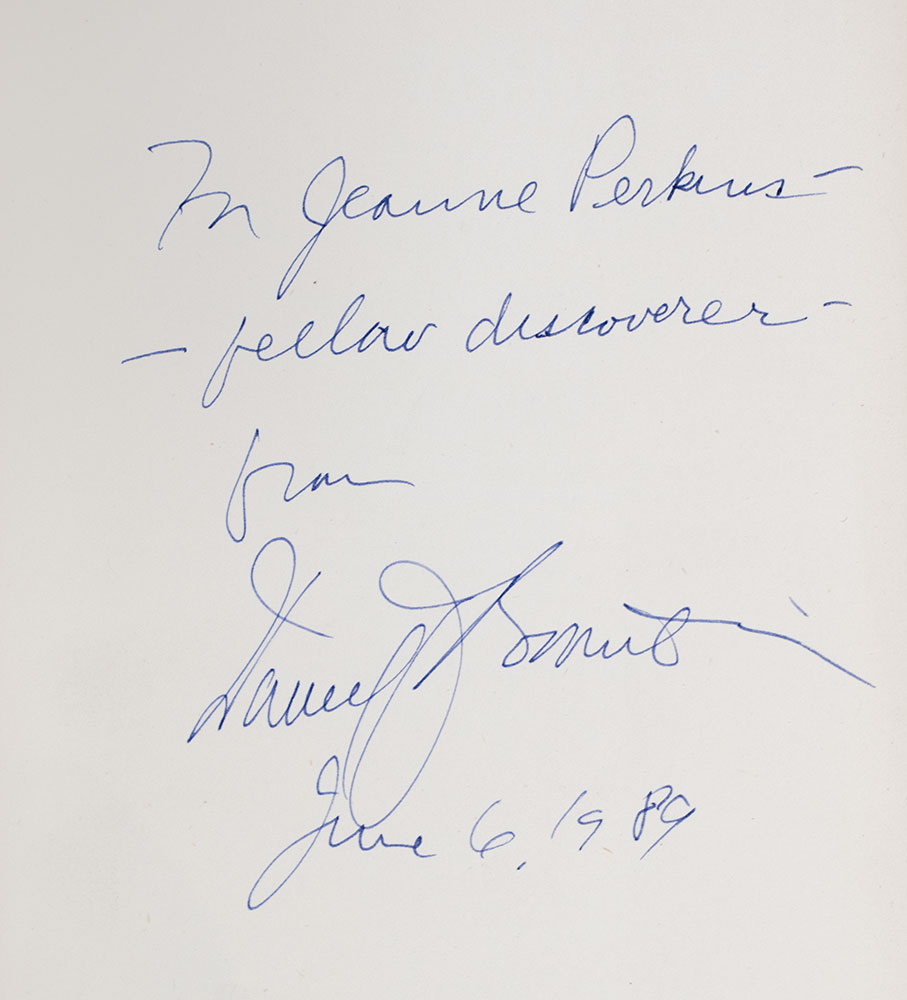 For Jeanne Perkins —
— fellow discoverer —
from
Daniel J Boorstin
June 6, 1989